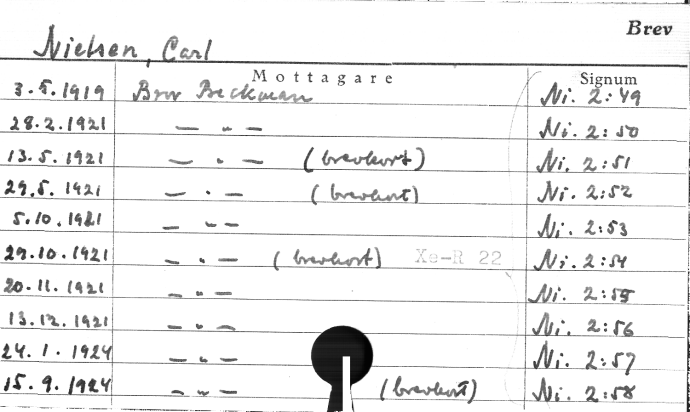 Brev
Nielsen, Carl
Mottagare Signum
3.5.1919 Bror Beckman Ni. 2:49
28.2.1921 — " — Ni. 2:50
13.5.1921 — " — (brevkort) Ni. 2:51
29.5.1921 — " — (brevkort) Ni. 2:52
5.10.1921 — " — Ni. 2:53
29.10.1921 — " — (brevkort) Xe-R 22 Ni. 2:54
20.11.1921 — " — Ni. 2:55
13.12.1921 — " — Ni. 2:56
24.1.1924 — " — Ni. 2:57
15.9.1924 — " — (brevkort) Ni. 2:58